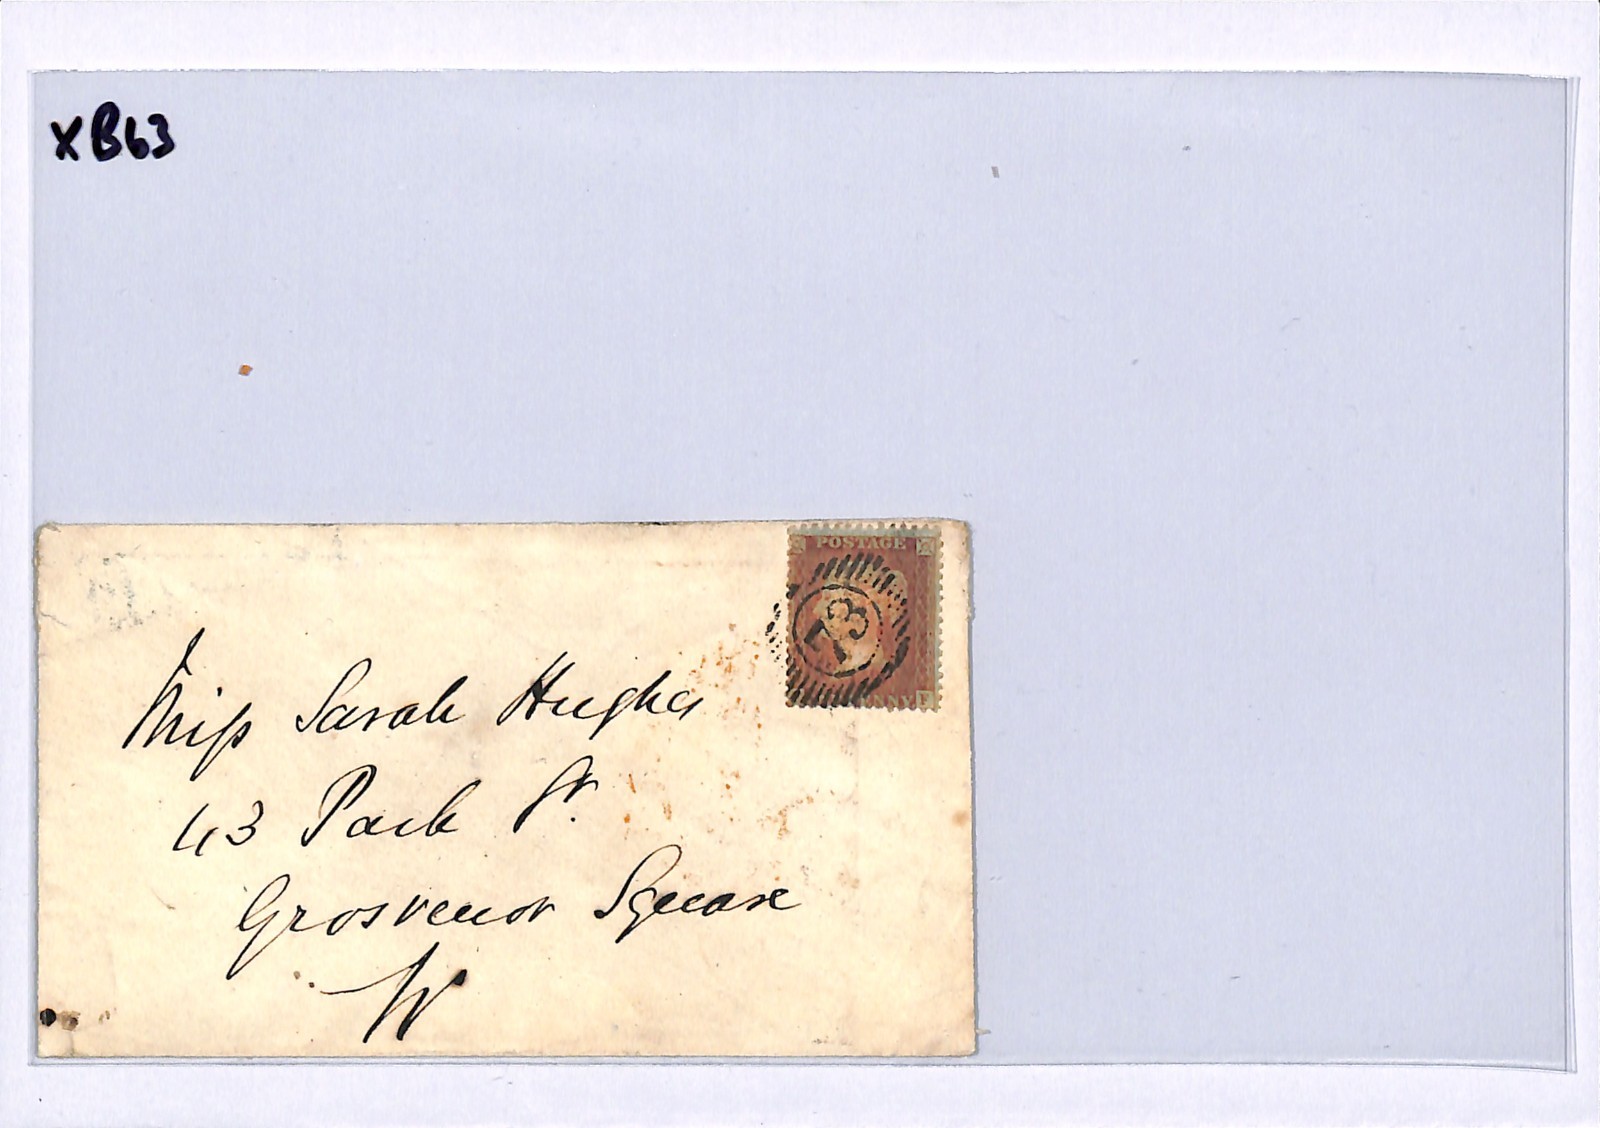 XB63
POSTAGE
73
Miss Sarah Hughes
43 Park St.
Grosvenor Square
W